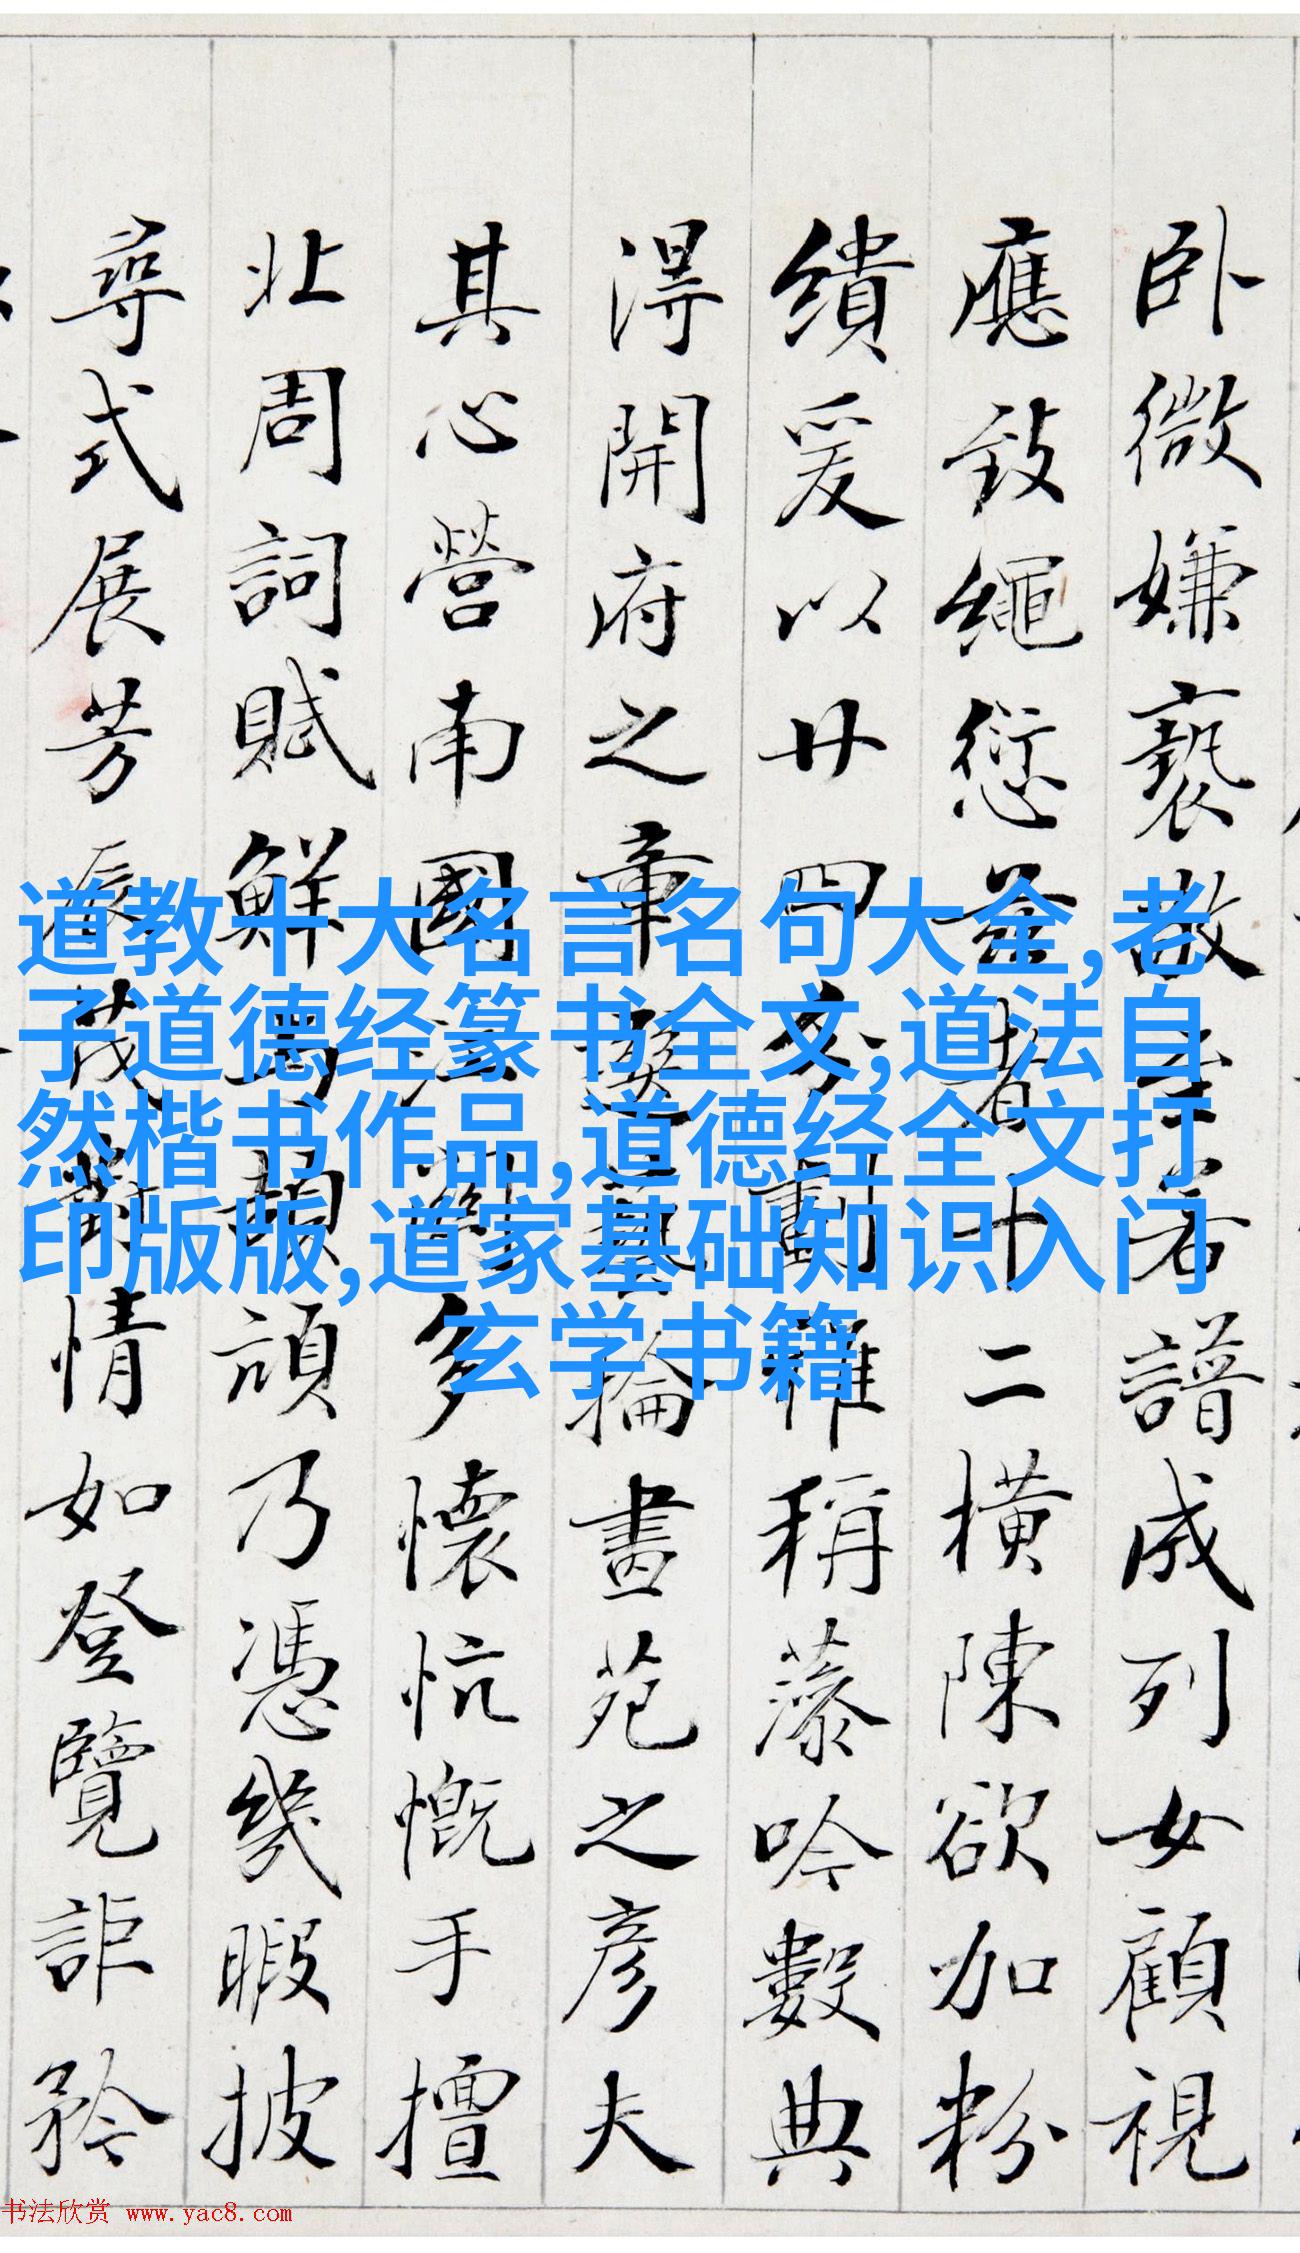 卧微嫌褻若譜成列女顧視
應致繩愆者十二橫陳欲加粉
繢爰以廿四分劃雖稱吟數典
淂開府之章藝掄畫苑之彥夫
其心營南國江關多懷忼慨手擅
北周詞賦鮮頡頏乃憑幾暇披
尋式展芳辰茂對情如登覽詎矜
道教十大名言名句大全,老
子道德经篆书全文,道法自
然楷书作品,道德经全文打
印版版,道家基础知识入门
玄学书籍
书法欣赏 www.yac8.com